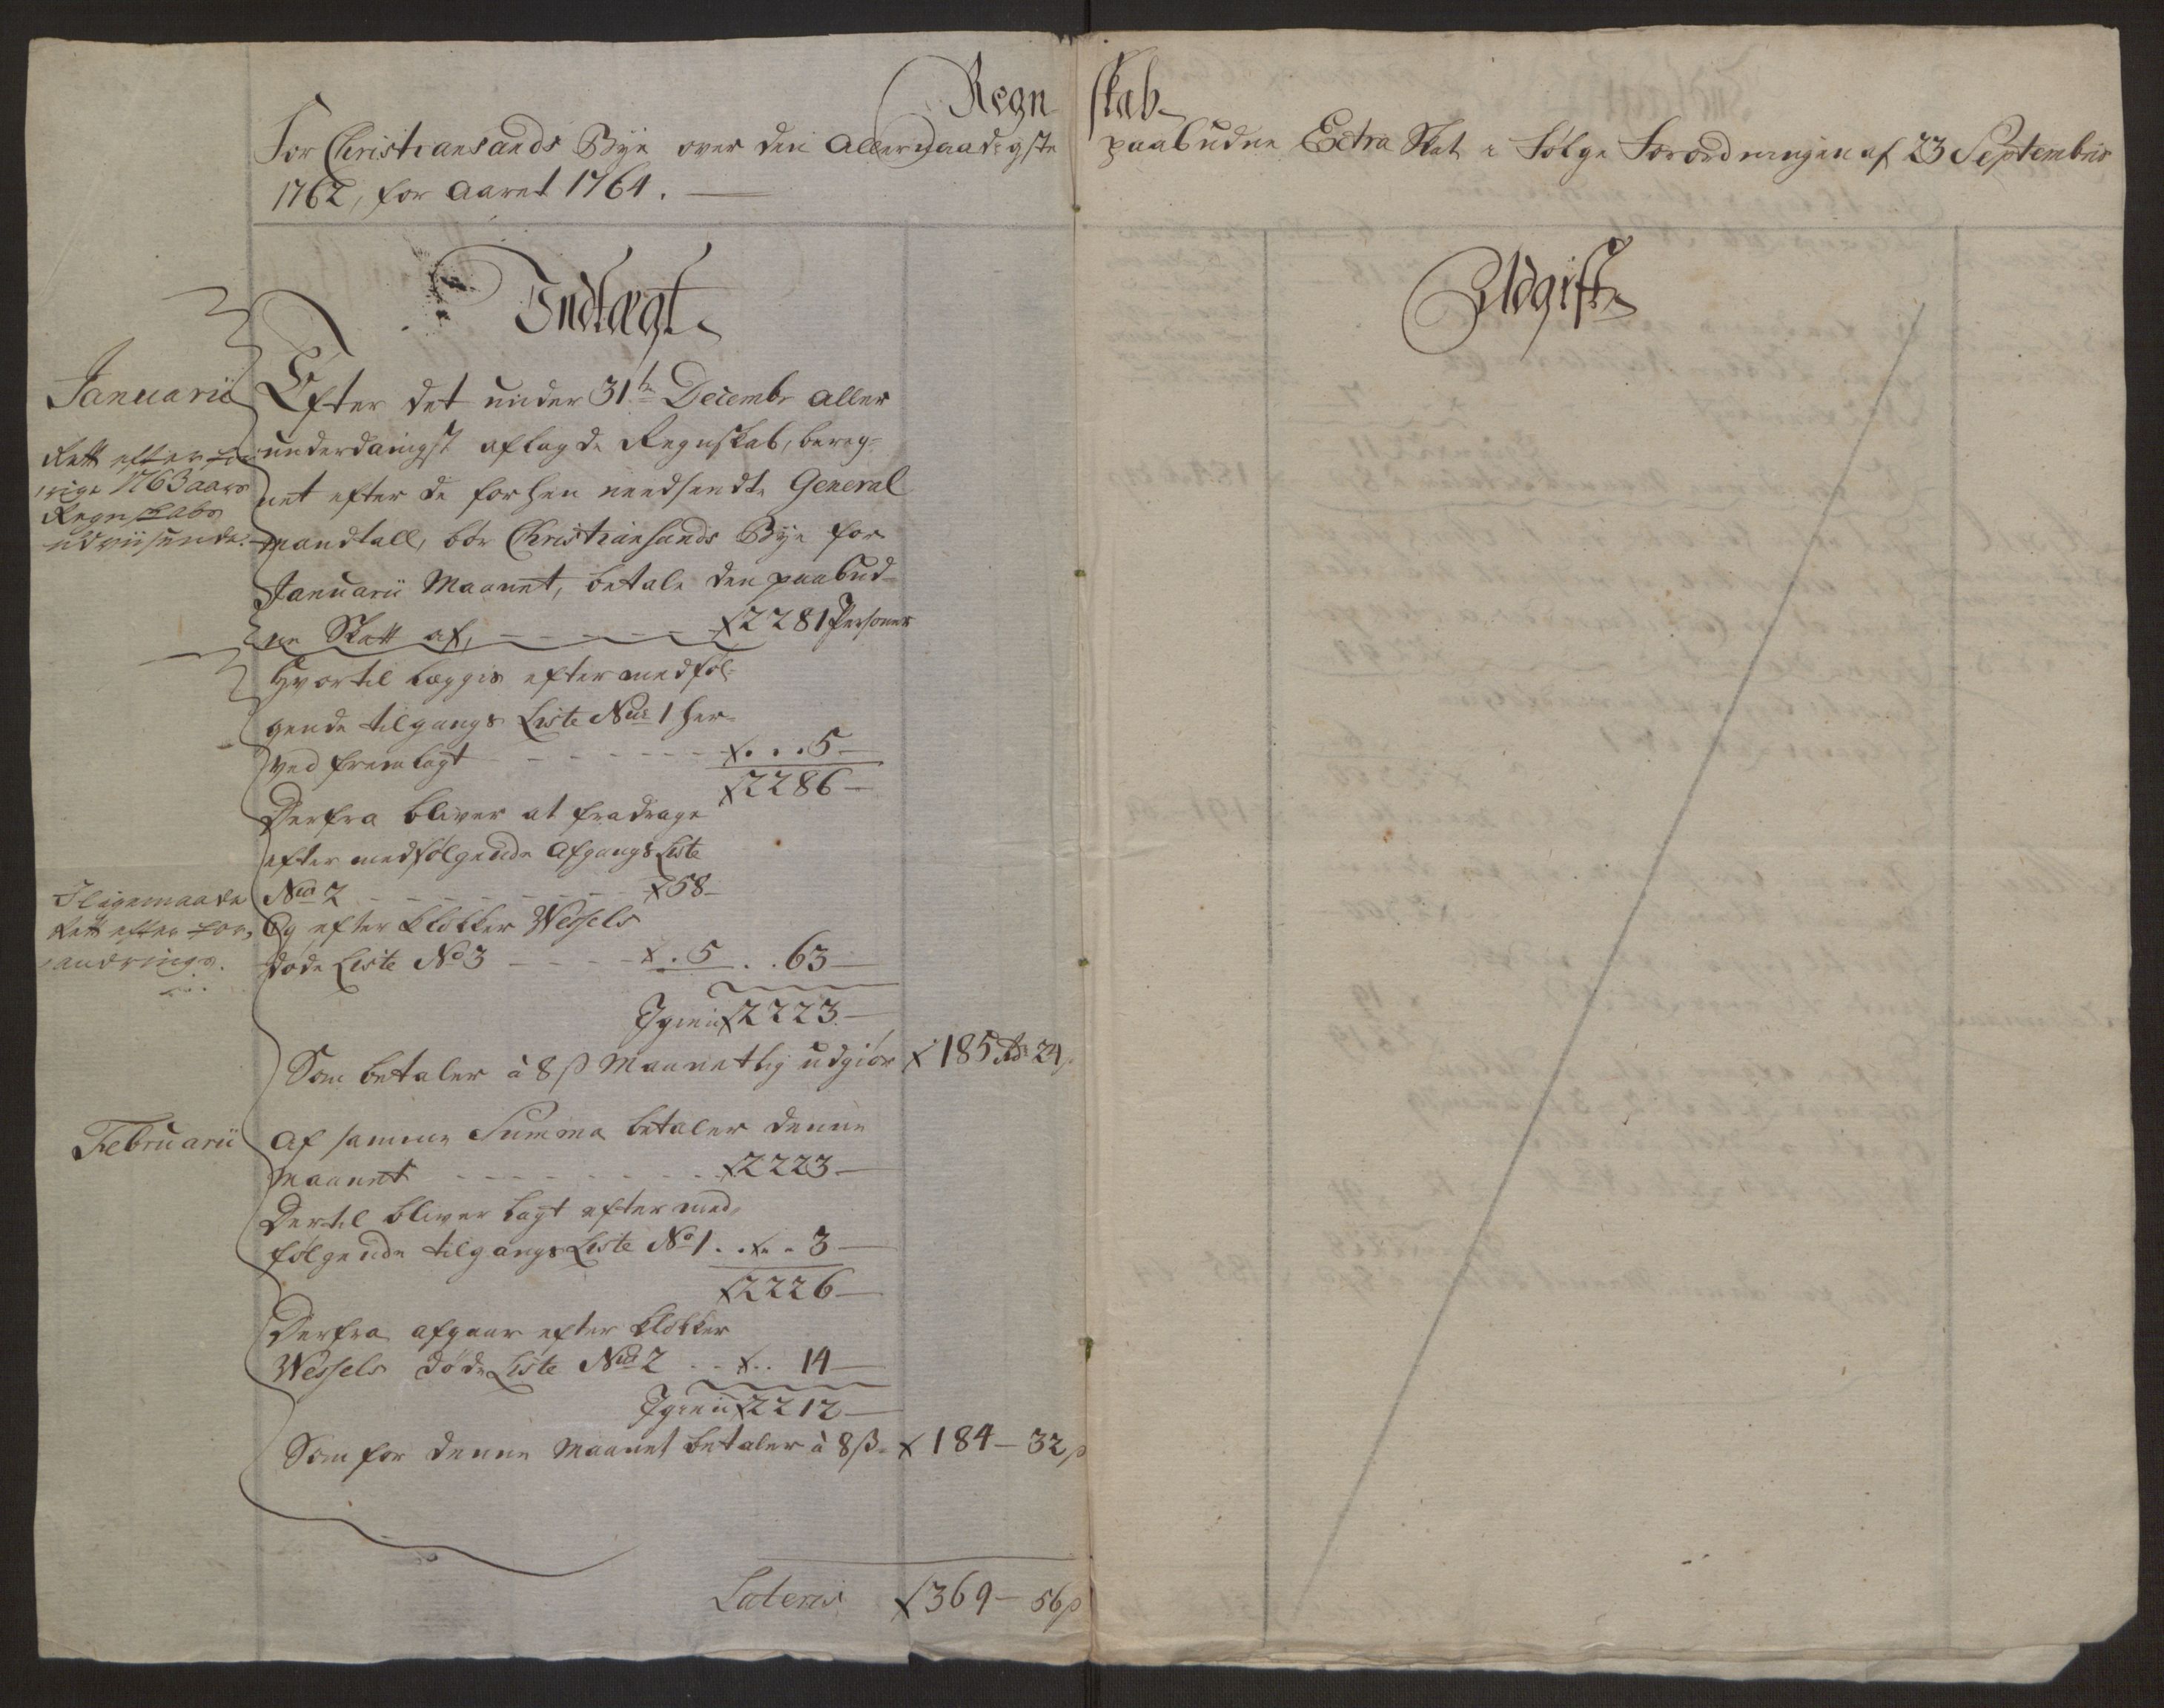 Regnskab
For Christiansands Bÿe over den Allernaadigste paabudne Extra Skat i Følge Forordningen af 23 Septembris
1762, for Aaret 1764.
Indtægt
Januarii
Efter det under 31te Decembr aller
underdanigst aflagde Regnskab, bereg-
net efter de forhen needsendte General
Mandtall, bør Christiansands Bÿe for
Januarii Maanet, betale den paabud-
ne Skatt af, 2281 Personer
Rett efter for
rige 1763 aars
Regnskabs
udviisende.
Hvortil legges efter medføl-
gende tilgangs Liste No 1 her-
ved fremlagt 5
2286
Derfra bliver at fradrage
efter medfølgende Afgangs Liste
No 2 58
Og efter Klokker Wessels
døde Liste No 3 5 . . 63
Iligemaade
Rett efter for,
andrings.
Igien 2223
Som betaler à 8 ß Maanetlig udgiør 185 Rd 24 ß
Februarii
Af samme Summa betaler denne
Maanet 2223
Dertil bliver lagt efter med-
følgende tilgangs Liste No 1 . . 3
2226
Derfra afgaar efter Klokker
Wessels døde Liste No 2 . . 14
Igien 2212
Som for denne Maanet betaler à 8 ß 184 - 32 ß
Lateris 369 - 56 ß
Udgift